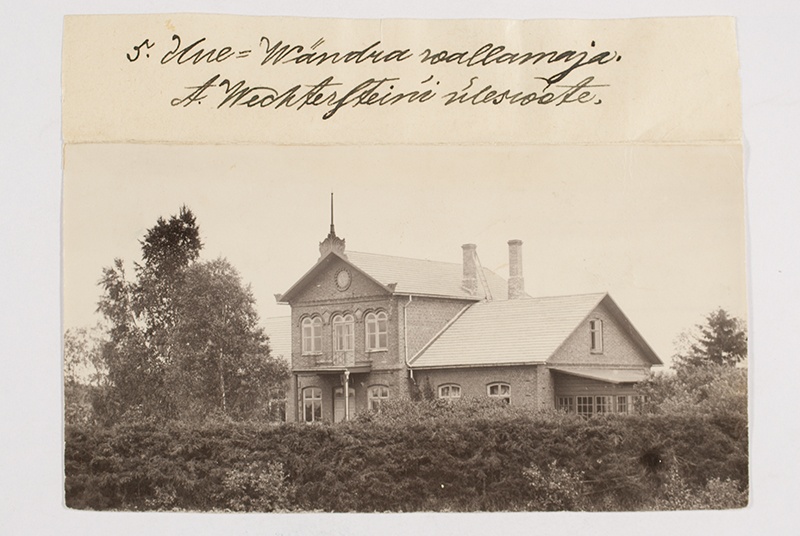 5. Uue=Wändra wallamaja.
A. Wechterśteini ülesvõte.